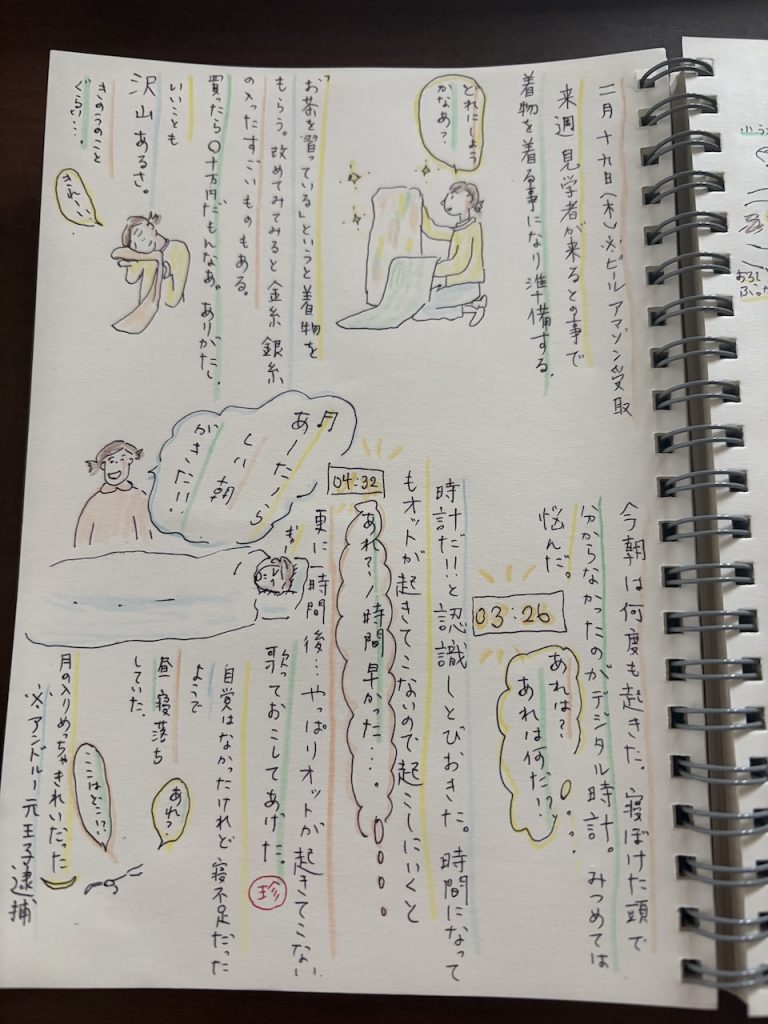 二月十九日(木)※ビールアマゾン受取
来週見学者が来るとの事で
着物を着る事になり準備する。
どれにしよう
かなぁ?
「お茶を習っている」というと着物を
もらう。改めてみてみると金糸銀糸
の入ったすごいものもある。
買ったら〇十万円だもんなあ。ありがたし
いいことも
沢山あるさ。
きのうのこと
ぐらい…。
きれーい
今朝は何度も起きた。寝ぼけた頭で
分からなかったのがデジタル時計。みつめては
悩んだ。
03:26
あれは?
あれは何だ!?
時計だ!!と認識しとびおきた。時間になって
もオットが起きてこないので起こしにいくと
04:32
あれ?1時間早かった…。
更に一時間後…やっぱりオットが起きてこない
♬
あーたーら
しい朝
がきた!!
歌っておこしてあげた。
珍
自覚はなかったけれど寝不足だった
ようで
昼寝落ち
していた。
あれ?
ここはどこ!?
月の入りめっちゃきれいだった
※アンドルー元王子逮捕